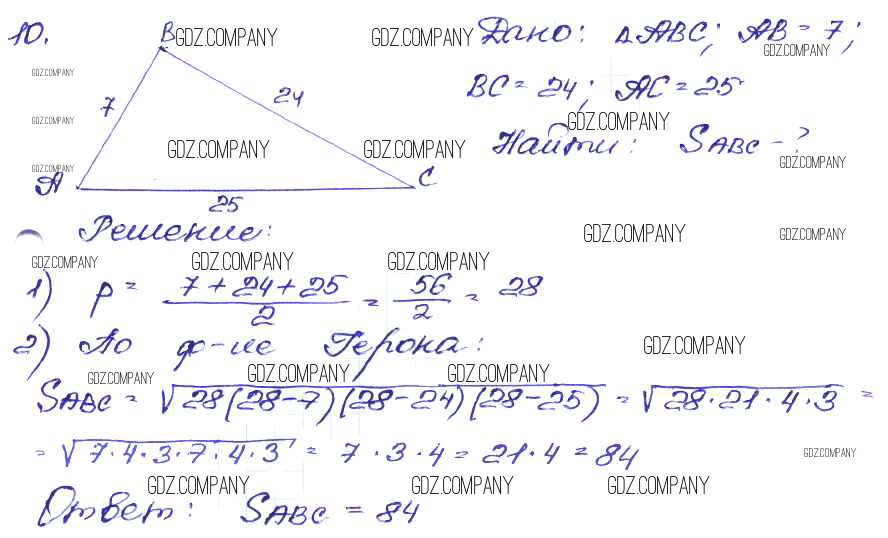 10. B GDZ.COMPANY GDZ.COMPANY Дано: △ABC; AB = 7;
GDZ.COMPANY GDZ.COMPANY
7 24 BC = 24; AC = 25
GDZ.COMPANY GDZ.COMPANY
GDZ.COMPANY GDZ.COMPANY Найти: SABC - ?
GDZ.COMPANY GDZ.COMPANY
A C
25
Решение: GDZ.COMPANY GDZ.COMPANY
GDZ.COMPANY GDZ.COMPANY GDZ.COMPANY
1) p = (7 + 24 + 25)/2 = 56/2 = 28
2) По ф-ле Герона: GDZ.COMPANY
GDZ.COMPANY GDZ.COMPANY GDZ.COMPANY
SABC = √(28(28-7)(28-24)(28-25)) = √(28·21·4·3) =
= √(7·4·3·7·4·3) = 7·3·4 = 21·4 = 84 GDZ.COMPANY
GDZ.COMPANY GDZ.COMPANY GDZ.COMPANY
Ответ: SABC = 84